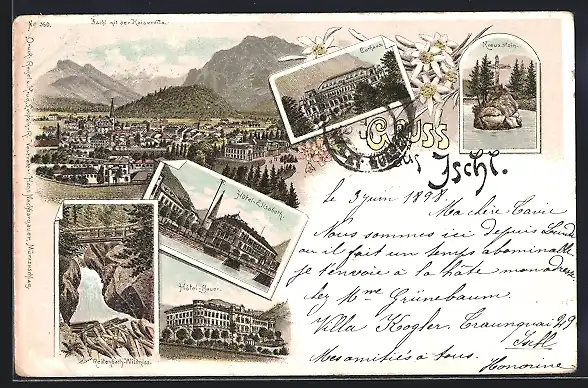 No 360.
Ischl mit der Kaiservilla.
Curhaus
Kreuzstein.
Gruss
aus
Ischl.
Hôtel Elisabeth.
Hôtel Bauer.
Rettenbach-Wildniss.
le 3 juin 1898.
Ma chère
Nous sommes ici depuis Lundi
ou il fait un temps abominable
je t'envoie à la hâte mon adresse
chez Mme Grünebaum
Villa Kogler, Traunquai 29
Ischl
Mes amitiés à tous.
Honorine